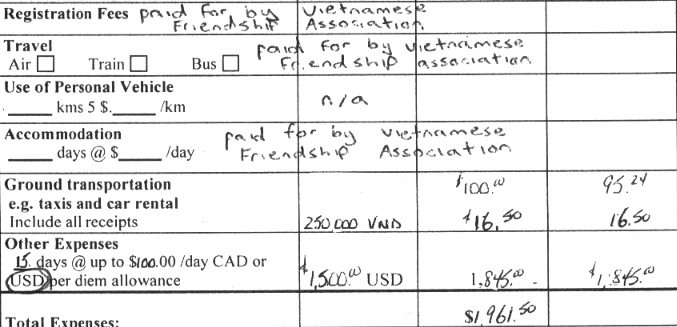 Registration Fees paid for by Vietnamese
Friendship Association.
Travel paid for by Vietnamese
Air Train Bus Friendship association.
Use of Personal Vehicle
____ kms 5 $.____ /km n/a
Accommodation paid for by Vietnamese
____ days @ $____ /day Friendship Association
Ground transportation $100.00 95.24
e.g. taxis and car rental
Include all receipts 250 000 VND $16.50 16.50
Other Expenses
15. days @ up to $100.00 /day CAD or
USD per diem allowance $1,500.00 USD 1,845.00 - $1,845.00
$1,961.50
Total Expenses: